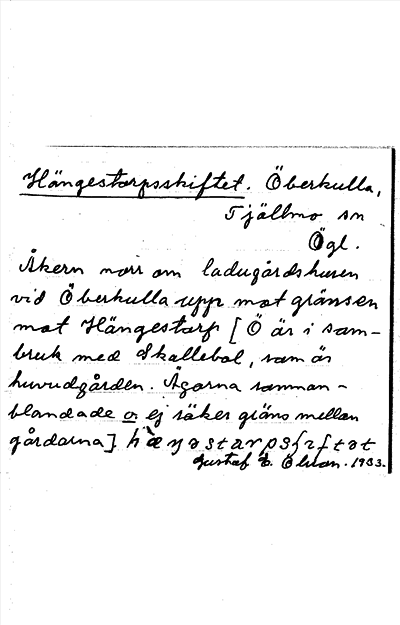 Hängestorpsskiftet. Öberkulla,
Tjällmo sn
Ögl.
Åkern norr om ladugårdshusen
vid Öberkulla upp mot gränsen
mot Hängestorp [Ö är i sam-
bruk med Skallebol, som är
huvudgården. Ägorna samman-
blandade o ej säker gräns mellan
gårdarna]
Gustaf E. Olson. 1933.